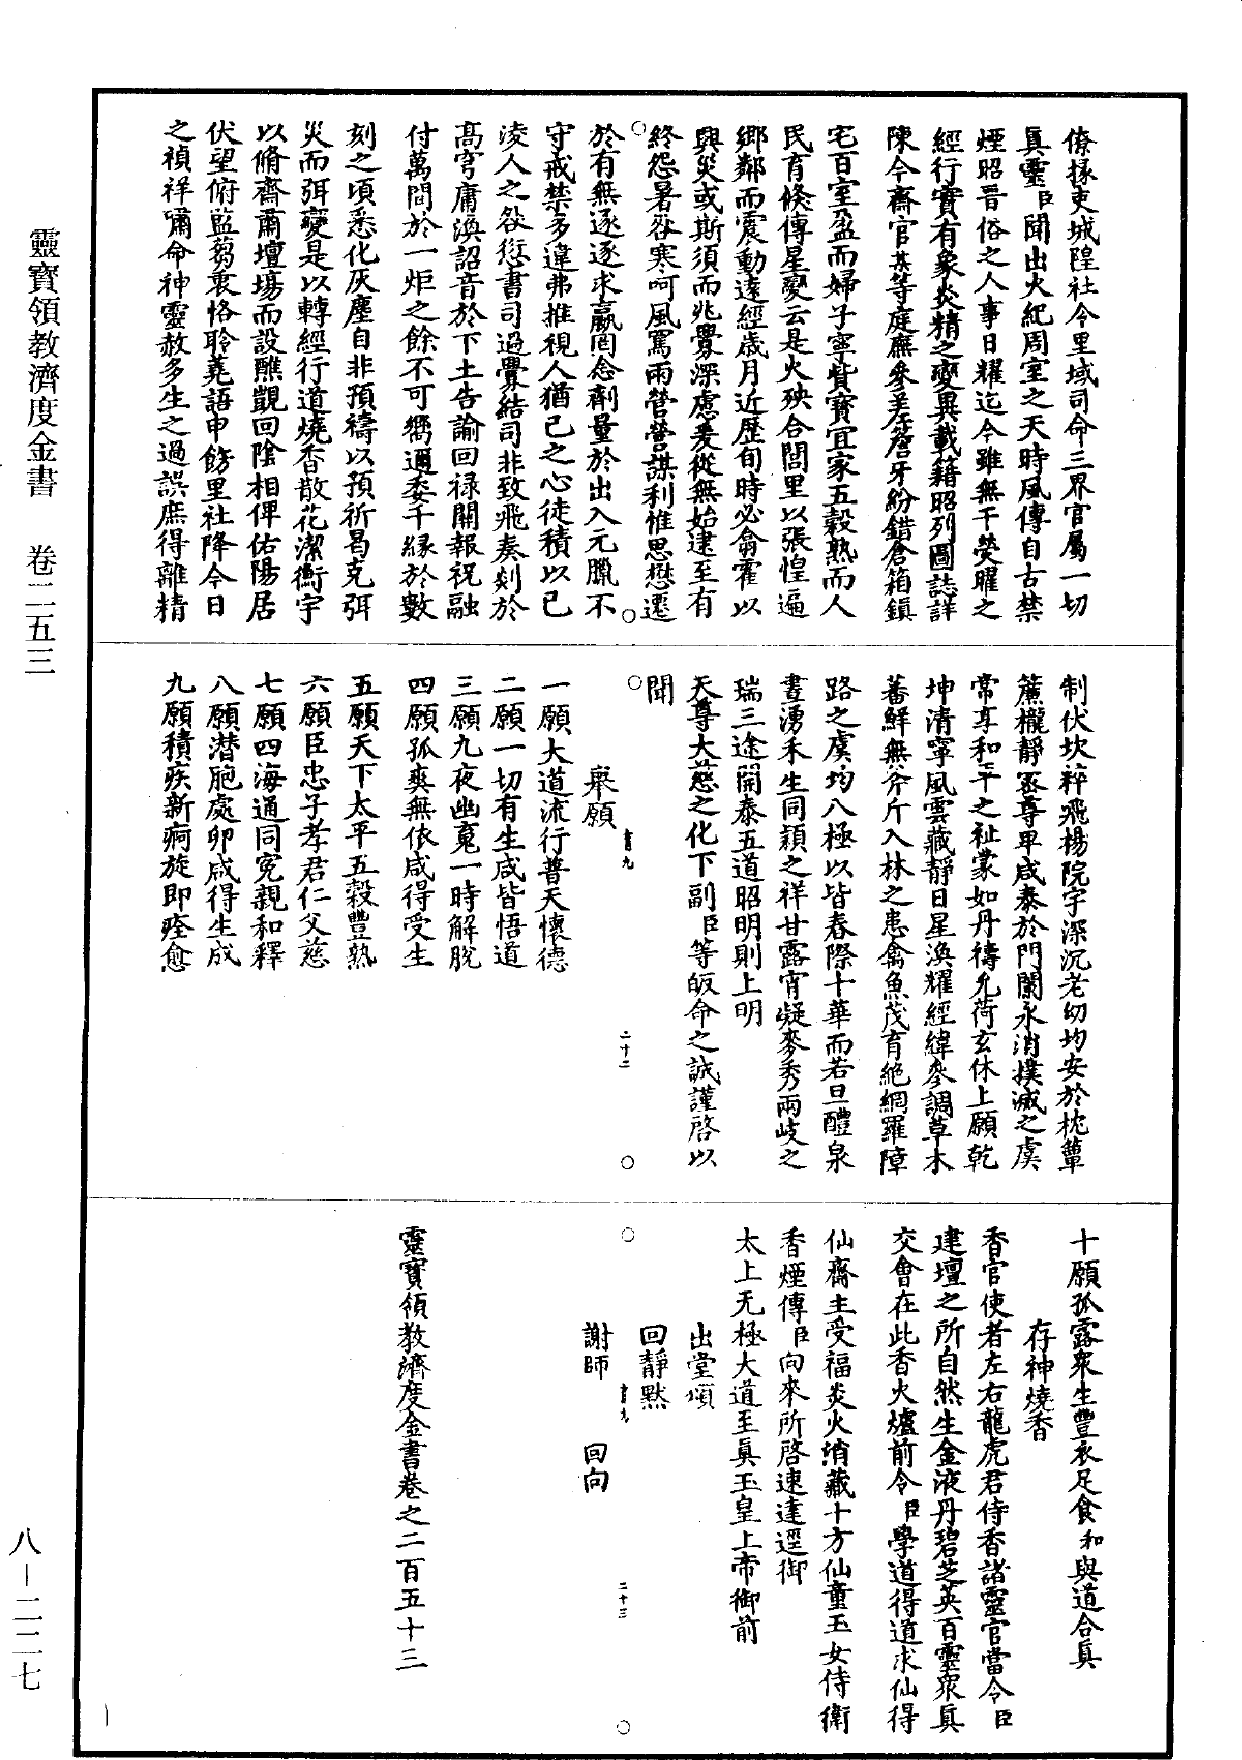 僚掾吏城隍社令里域司命三界官屬一切
真靈臣聞出火紀周室之天時風傳自古禁
煙昭晉俗之人事日耀迄今雖無干熒曜之
經行實有象炎精之變異載籍昭列圖誌詳
陳今齋官某等庭廡參差簷牙紛錯倉箱鎮
宅百室盈而婦子寧貲寶宜家五穀熟而人
民育倐傳星變云是火殃合閭里以張惶遍
鄉鄰而震動遠經歲月近歷旬時必翕霍以
興災或斯須而兆釁深慮爰從無始逮至有
終怨暑咎寒呵風罵雨營營謀利惟思懋遷
於有無逐逐求贏罔念劑量於出入元臘不
守戒禁多違弗推視人猶己之心徒積以己
淩人之咎愆書司過釁結司非致飛奏剡於
高穹庸渙詔音於下土告諭回祿關報祝融
付萬間於一炬之餘不可嚮邇委千緣於數
刻之頃悉化灰塵自非預禱以預祈曷克弭
災而弭變是以轉經行道燒香散花潔衡宇
以脩齋肅壇場而設醮觀回陰相俾佑陽居
伏望俯監蒭衷恪聆蕘語申飭里社降今日
之禎祥嘯命神靈赦多生之過誤庶得離精
制伏坎粹飛楊院宇深沉老幼均安於枕簟
簾櫳靜密尊卑咸泰於門闌永消撲滅之虞
常享和平之祉蒙如丹禱允荷玄休上願乾
坤清寧風雲藏靜日星渙耀經緯參調草木
蕃鮮無斧斤入林之患禽魚茂育絕網羅障
路之虞均八極以皆春際十華而若旦醴泉
晝湧禾生同穎之祥甘露宵凝麥秀兩岐之
瑞三途開泰五道昭明則上明
天尊大慈之化下副臣等皈命之誠謹啓以
聞
舉願
二十二
一願大道流行普天懷德
二願一切有生咸皆悟道
三願九夜幽䰟一時解脫
四願孤爽無依咸得受生
五願天下太平五穀豐熟
六願臣忠子孝君仁父慈
七願四海通同寃親和釋
八願潛胞處卵咸得生成
九願積疾新痾旋即痊愈
十願孤露眾生豐衣足食和與道合真
存神燒香
香官使者左右龍虎君侍香諸靈官當令臣
建壇之所自然生金液丹碧芝英百靈眾真
交會在此香火爐前令臣學道得道求仙得
仙齋主受福炎火消藏十方仙童玉女侍衛
香煙傳臣向來所啓速達逕御
太上无極大道至真玉皇上帝御前
出堂頌
回靜默
謝師　回向
二十三
靈寶領教濟度金書卷之二百五十三
靈寶領教濟度金書　卷二五三
八－二二七